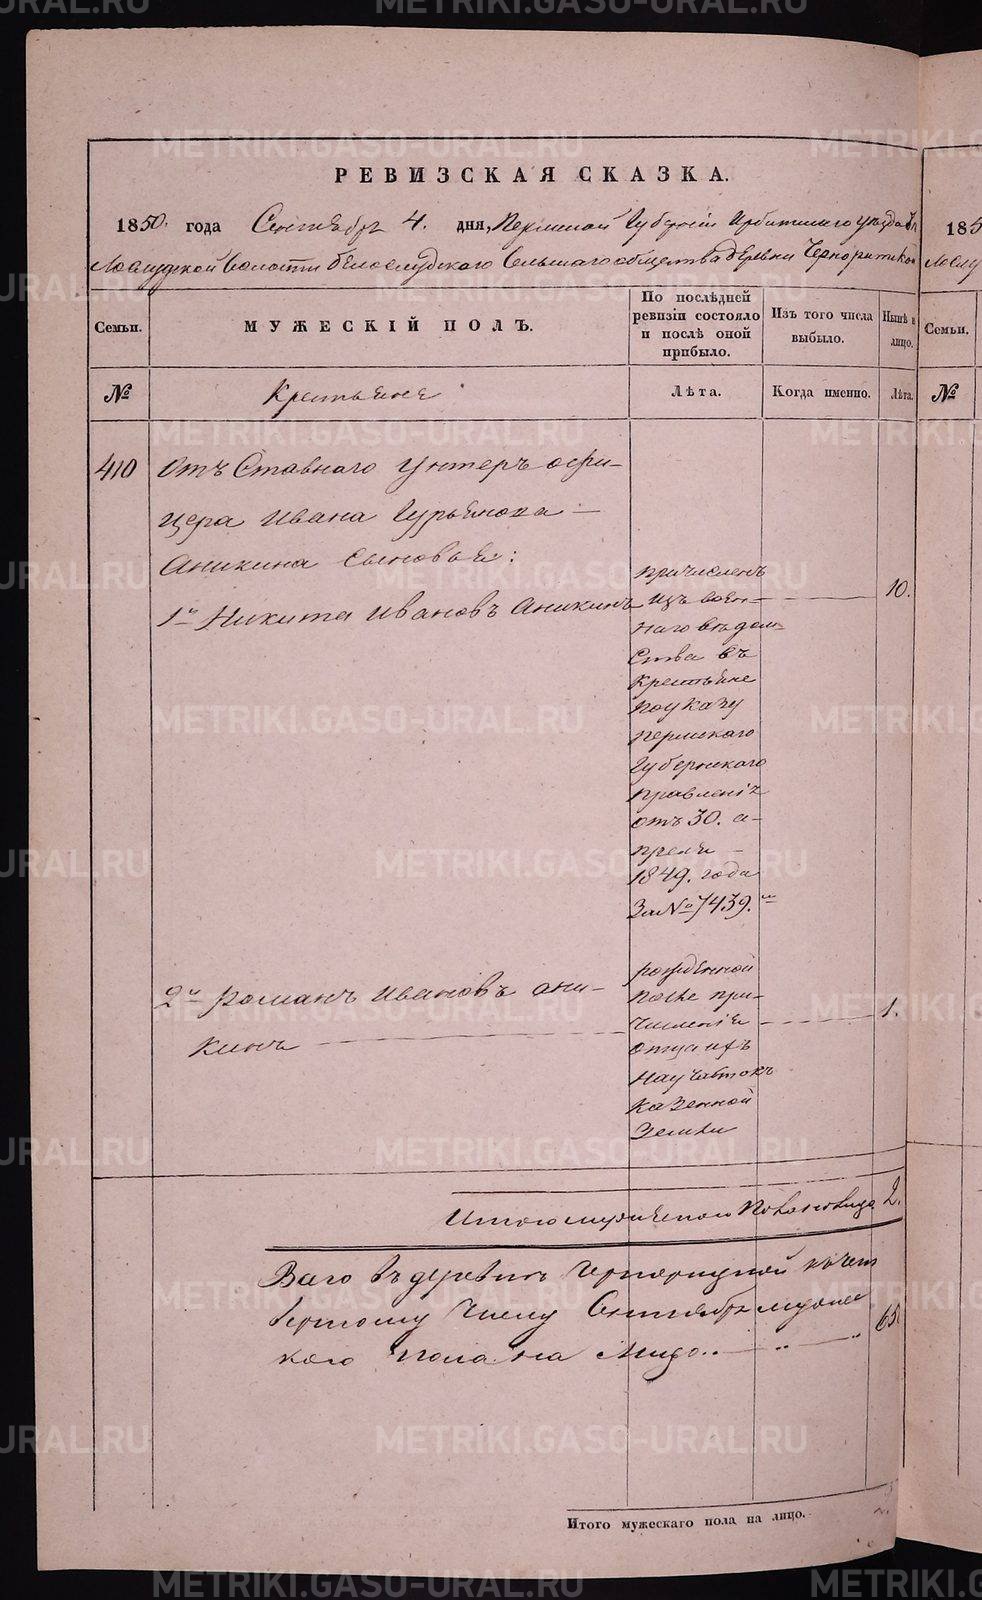 РЕВИЗСКАЯ СКАЗКА.
1850. года Сентября 4. дня, Пермской Губерніи Ирбитскаго уѣзда Бѣ
лослудской волости Белослудскаго Сельскаго общества деревни
Семьи.
МУЖЕСКІЙ ПОЛЪ.
По послѣдней ревизіи состояло и послѣ оной прибыло.
Изъ того числа выбыло.
Нынѣ на лицо.
№
Крестьяне
Лѣта.
Когда именно.
Лѣта.
410
Отъ Ставнаго Унтеръ офи-
цера Ивана Гурьянова
Аникина сыновья:
1й Никита Ивановъ Аникинъ
причисленъ
изъ воен-
наго вѣдом-
ства въ
крестьяне
по указу
пермскаго
Губернскаго
правленія
отъ 30. а-
преля
1849. года
За № 7439.м
10.
2й Романъ Ивановъ Ани-
кинъ
рожденной
после при-
численія
отца ихъ
на участокъ
казенной
земли
1.
Итого мужескаго пола на лицо 2.
Всего въ деревнѣ къ чет
вертому числу Сентября мужес
каго пола на лицо
Итого мужескаго пола на лицо.
185
лослу
Семьи.
№
METRIKI.GASO-URAL.RU